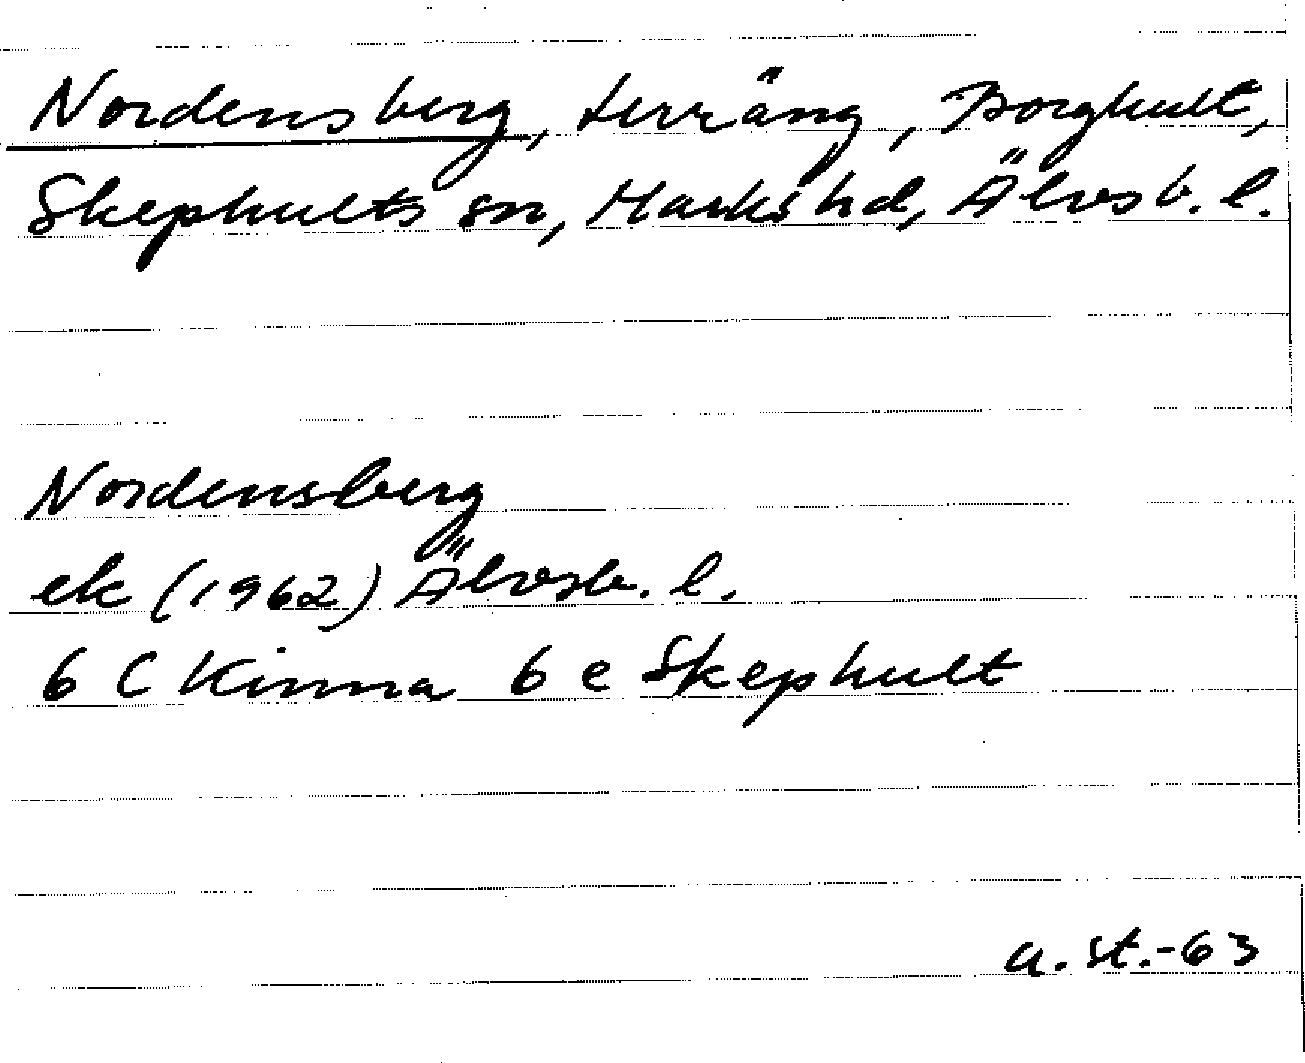 Nordensberg, terräng, Borghult,
Skephults sn, Marks hd, Älvsb. l.
Nordensberg
ek (1962) Älvsb. l.
6 C Kinna 6 e Skephult
a. st.-63